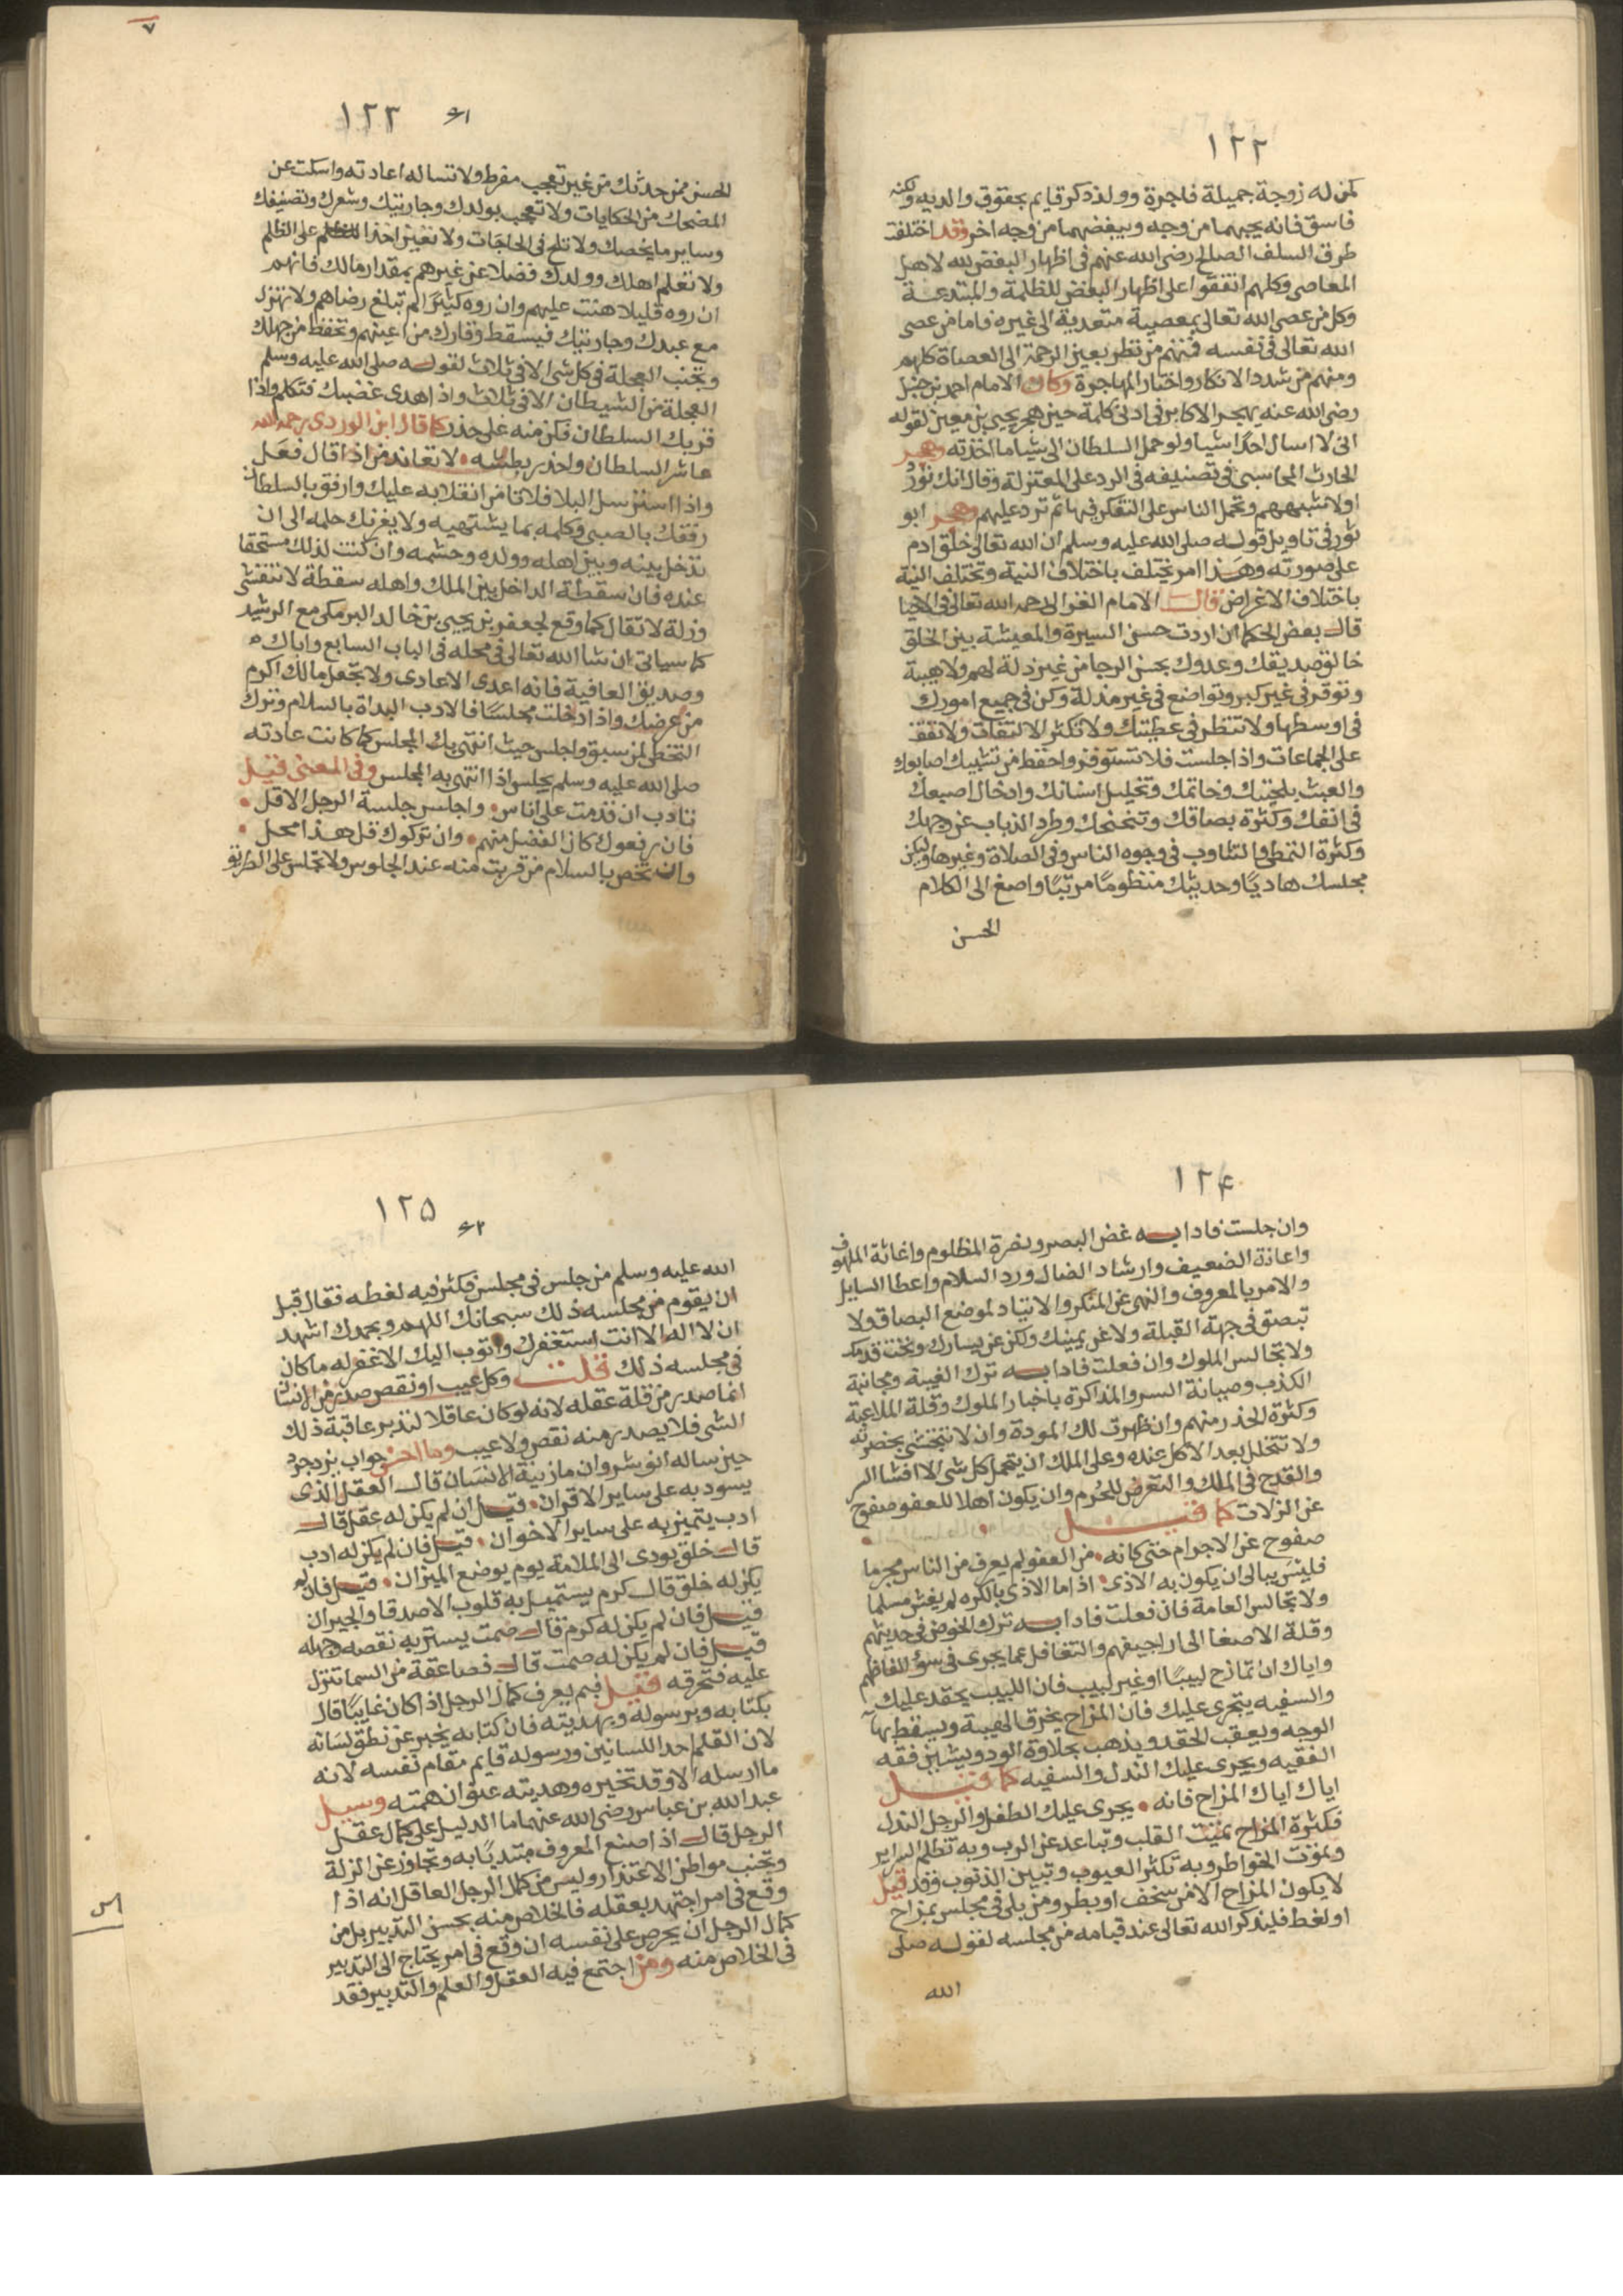 ١٢٢
كمن له زوجة جميلة فاجرة وولد ذكر قايم بحقوق والديه ولكنه
فاسق فانه يحبهما من وجه ويبغضهما من وجه اخر وقد اختلفت
طرق السلف الصالح رضى الله عنهم فى اظهار البغض لله لاهل
المعاصى وكلهم اتفقوا على اظهار البغض للظلمة والمبتدعة
وكل من عصى الله تعالى بمعصية متعدية الى غيره فاما من عصى
الله تعالى فى نفسه فمنهم من نظر بعين الرحمة الى العصاة كلهم
ومنهم من شدد الانكار واختار المهاجرة وكان الامام احمد بن حنبل
رضى الله عنه يهجر الاكابر فى ادنى كلمة حين هجر يحيى بن معين لقوله
انى لا اسال احدًا شيا ولو حمل السلطان الى شيا ما اخذته وهجر
الحارث المحاسبى فى تصنيفه فى الرد على المعتزلة وقال انك تورد
اولا شبههم وتحمل الناس على التفكر فيها ثم ترد عليهم وهجر ابو
ثور فى تاويل قوله صلى الله عليه وسلم ان الله تعالى خلق ادم
على صورته وهذا امر يختلف باختلاف النية وتختلف النية
باختلاف الاغراض قال الامام الغزالى رحمه الله تعالى فى الاحيا
قال بعض الحكما ان اردت حسن السيرة والمعيشة بين الخلق
خالق صديقك وعدوك بحسن الرجا من غير ذلة لهم ولا هيبة
وتوقر فى غير كبر وتواضع فى غير مذلة وكن فى جميع امورك
فى اوسطها ولا تنظر فى عطفيك ولا تكثر الالتفات ولا تقف
على الجماعات واذا جلست فلا تستوفز واحفظ من تشبيك اصابعك
والعبث بلحيتك وخاتمك وتخليل اسنانك وادخال اصبعك
فى انفك وكثرة بصاقك وتنحنحك وطرد الذباب عن وجهك
وكثرة التمطى والتثاوب فى وجوه الناس وفى الصلاة وغيرها وليكن
مجلسك هاديًا وحديثك منظومًا مرتبًا واصغ الى الكلام
الحسن
٧
١٢٣
الحسن ممن حدثك من غير تعجب مفرط ولا تساله اعادته واسكت عن
المضحك من الحكايات ولا تعجب بولدك وجاريتك وشعرك وتصنيفك
وساير ما يخصك ولا تلح فى الحاجات ولا تعين احدا على الظلم
ولا تعلم اهلك وولدك فضلا عن غيرهم بمقدار مالك فانهم
ان روه قليلا هنت عليهم وان روه كثيرًا لم تبلغ رضاهم ولا تهزل
مع عبدك وجاريتك فيسقط وقارك من اعينهم وتحفظ من جهلك
وتجنب العجلة فى كل شى الا فى ثلاث لقوله صلى الله عليه وسلم
العجلة من الشيطان الا فى ثلاث واذا هدى غضبك فتكلم واذا
قربك السلطان فكن منه على حذر كما قال ابن الوردى رحمه الله
عاشر السلطان واحذر بطشه • لا تعاند من اذا قال فعل
واذا استرسل اليك فلا تامن انقلابه عليك وارفق بالسلطان
رفقك بالصبى وكلمه بما يشتهيه ولا يغرنك حلمه الى ان
تدخل بينه وبين اهله وولده وحشمه وان كنت لذلك مستحقا
عنده فان سقطة الداخل بين الملك واهله سقطة لا تنتعش
وزلة لا تقال كما وقع لجعفر بن يحيى بن خالد البرمكى مع الرشيد
كما سياتى ان شا الله تعالى فى محله فى الباب السابع واياك
وصديق العافية فانه اعدى الاعادى ولا تجعل مالك اكرم
من عرضك واذا دخلت مجلسًا فالادب البداة بالسلام وترك
التخطى لمن سبق واجلس حيث انتهى بك المجلس كما كانت عادته
صلى الله عليه وسلم يجلس اذا انتهى به المجلس وفى المعنى قيل
تادب ان قدمت على اناس • واجلس جلسة الرجل الاقل •
فان رفعوك كان الفضل منهم • وان تركوك قل هذا محل •
وان تخص بالسلام من قربت منه عند الجلوس ولا تجلس على الطريق
١٢٤
وان جلست فادابه غض البصر ونصرة المظلوم واغاثة الملهوف
واعاذة الضعيف وارشاد الضال ورد السلام واعطا السايل
والامر بالمعروف والنهى عن المنكر والارتياد لموضع البصاق ولا
تبصق فى جهة القبلة ولا عن يمينك ولكن عن يسارك وتحت قدمك
ولا تجالس الملوك وان فعلت فادابه ترك الغيبة ومجانبة
الكذب وصيانة السر والمذاكرة باخبار الملوك وقلة الملاعبة
وكثرة الحذر منهم وان ظهرت لك المودة وان لا تتجشى بحضرته
ولا تتخلل بعد الاكل عنده وعلى الملك ان يتحمل كل شى الا افشا السر
والقدح فى الملك والتعرض للحُرم وان يكون اهلا للعفو صفوح
عن الزلات كما قيل
صفوح عن الاجرام حتى كانه • من العفو لم يعرف من الناس مجرما
فليس يبالى ان يكون به الاذى • اذا ما الاذى بالكره لم يغش مسلما
ولا تجالس العامة فان فعلت فادابه ترك الخوض فى حديثهم
وقلة الاصغا الى اراجيفهم والتغافل عما يجرى فى سوء الفاظهم
واياك ان تمازح لبيبًا او غير لبيب فان اللبيب يحقد عليك
والسفيه يتجرى عليك فان المزاح يخرق الهيبة ويسقط بهآ
الوجه ويعقب الحقد ويذهب بحلاوة الود ويشين فقه
الفقيه ويجرى عليك الندل والسفيه كما قيل
اياك اياك المزاح فانه • يجرى عليك الطفل والرجل الندل
فكثرة المزاح تميت القلب وتباعد عن الرب وبه تظلم السراير
وتموت الخواطر وبه تكثر العيوب وتبين الذنوب وقد قيل
لا يكون المزاح الا من سخف او بطر ومن بلى فى مجلس بمزاح
او لغط فليذكر الله تعالى عند قيامه من مجلسه لقوله صلى
الله
١٢٥
الله عليه وسلم من جلس فى مجلس فكثر فيه لغطه فقال قبل
ان يقوم من مجلسه ذلك سبحانك اللهم وبحمدك اشهد
ان لا اله الا انت استغفرك واتوب اليك الا غفر له ما كان
فى مجلسه ذلك قلت وكل عيب او نقص صدر من الانسان
انما صدر من قلة عقله لانه لو كان عاقلا لتدبر عاقبة ذلك
الشى فلا يصدر منه نقص ولا عيب وما احسن جواب بزدجرد
حين ساله انوشروان ما زينة الانسان قال العقل الذى
يسود به على ساير الاقران • قيل ان لم يكن له عقل قال
ادب يتميز به على ساير الاخوان • قيل فان لم يكن له ادب
قال خلق يودى الى الملامة يوم يوضع الميزان • قيل فان لم
يكن له خلق قال كرم يستميل به قلوب الاصدقا والجيران
قيل فان لم يكن له كرم قال صمت يستر به نقصه وجهله
قيل فان لم يكن له صمت قال فصاعقة من السما تنزل
عليه فتحرقه قيل فبم يعرف كمال الرجل اذا كان غايبًا قال
بكتابه وبرسوله وبهديته فان كتابه يخبر عن نطق لسانه
لان القلم احد اللسانين ورسوله قايم مقام نفسه لانه
ما ارسله الا وقد تخيره وهديته عنوان همته وسيل
عبد الله بن عباس رضى الله عنهما ما الدليل على كمال عقل
الرجل قال اذا صنع المعروف مبتديًا به وتجاوز عن الزلة
وتجنب مواطن الاعتذار وليس من كمال الرجل العاقل انه اذا
وقع فى امر اجتهد بعقله فالخلاص منه بحسن التدبير بل من
كمال الرجل ان يحرص على نفسه ان وقع فى امر يحتاج الى التدبير
فى الخلاص منه ومن اجتمع فيه العقل والعلم والتدبير فقد